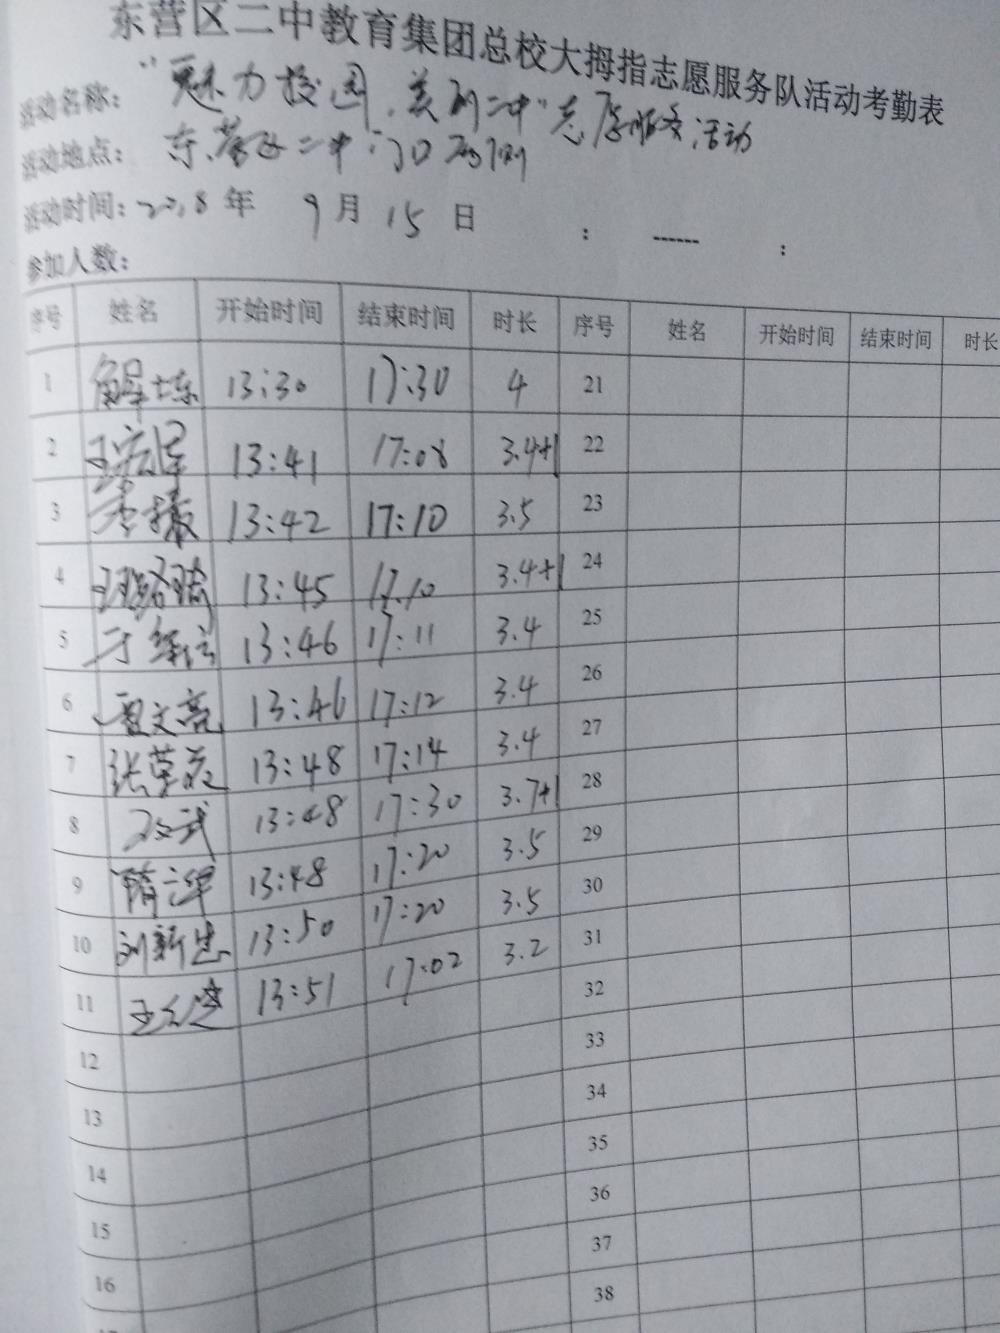 东营区二中教育集团总校大拇指志愿服务队活动考勤表
活动名称： “魅力校园，美丽二中”志愿服务活动
活动地点： 东营区二中门口两侧
活动时间：2018年 9月15日 : ------ :
参加人数：
序号 姓名 开始时间 结束时间 时长 序号 姓名 开始时间 结束时间 时长
1 13:30 17:30 4 21
2 13:41 17:08 3.4+1 22
3 13:42 17:10 3.5 23
4 13:45 17.10 3.4+1 24
5 13:46 17:11 3.4 25
6 13:46 17:12 3.4 26
7 张荣 13:48 17:14 3.4 27
8 13:48 17:30 3.7+1 28
9 隋 13:48 17:20 3.5 29
10 刘新忠 13:50 17:20 3.5 30
11 13:51 17:02 3.2 31
12 32
13 33
14 34
15 35
16 36
37
38